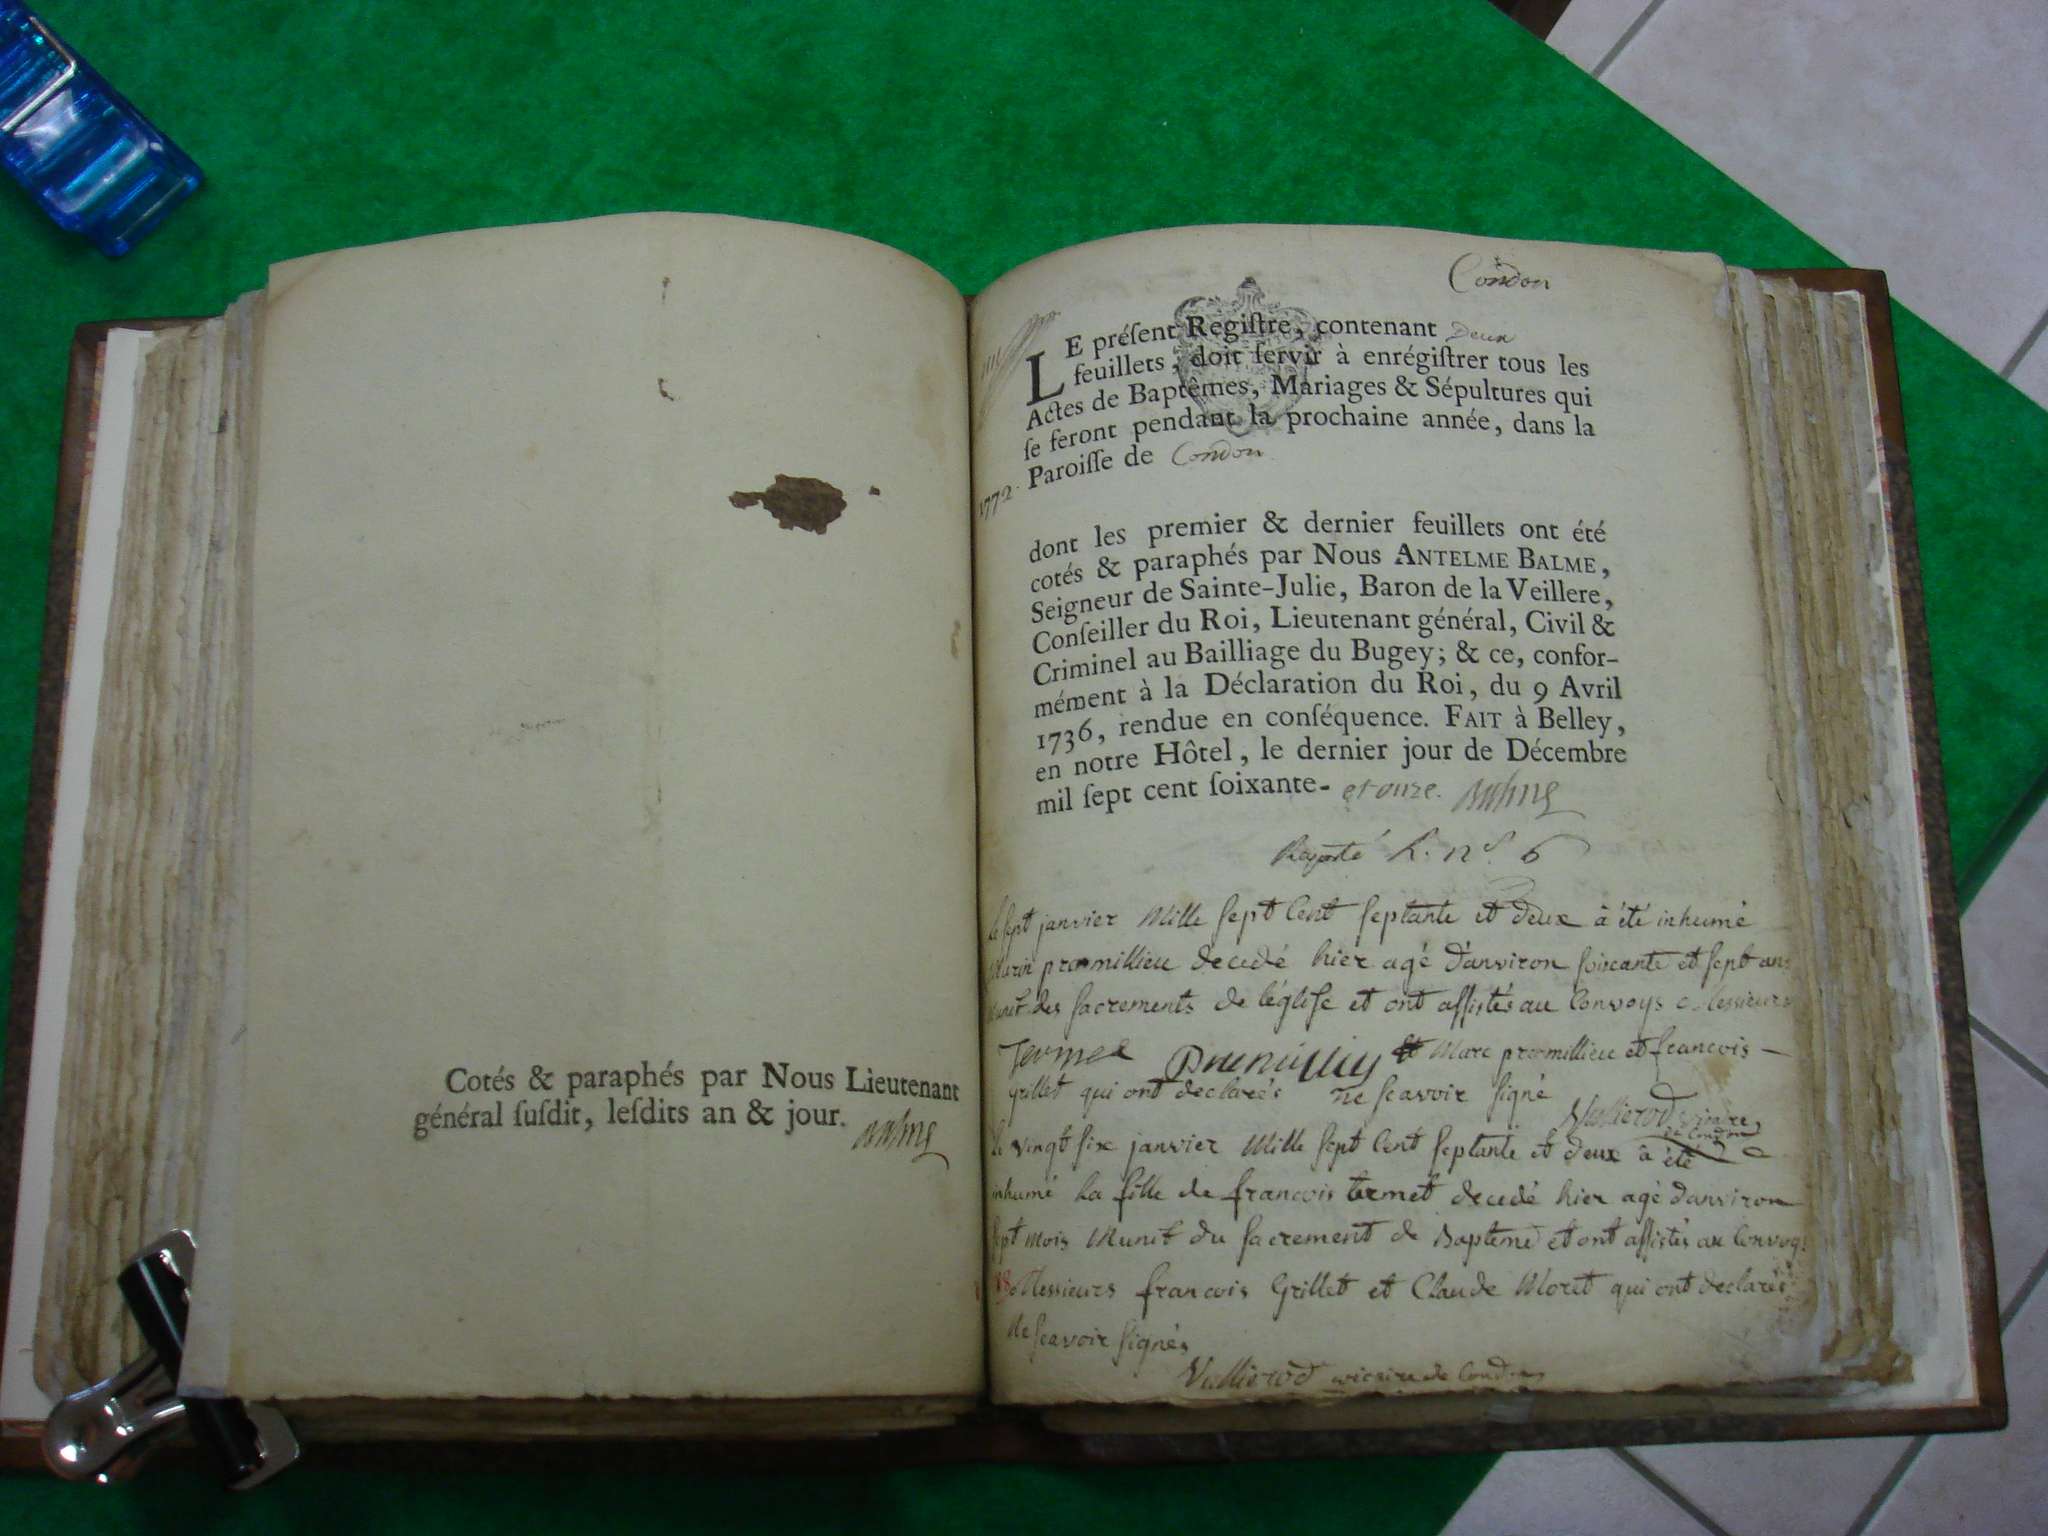 Cotés & paraphés par Nous Lieutenant
général ſuſdit, leſdits an & jour. Balme
Condon
LE préſent Regiſtre, contenant Deux
feuillets, doit ſervir à enrégiſtrer tous les
Actes de Baptêmes, Mariages & Sépultures qui
ſe feront pendant la prochaine année, dans la
Paroiſſe de Condon
1772.
dont les premier & dernier feuillets ont été
cotés & paraphés par Nous ANTELME BALME,
Seigneur de Sainte-Julie, Baron de la Veillere,
Conſeiller du Roi, Lieutenant général, Civil &
Criminel au Bailliage du Bugey; & ce, confor-
mément à la Déclaration du Roi, du 9 Avril
1736, rendue en conſéquence. FAIT à Belley,
en notre Hôtel, le dernier jour de Décembre
mil ſept cent ſoixante- et onze. Balme
R. n°. 6
le sept janvier Mille sept Cent septante et deux à été inhumé
premillieu decedé hier agé d'anviron soixante et sept ans
Munit des sacrements de l'église et ont assistés au Convoys Messieurs
et Marc premillieu et francois
Grillet qui ont declarés ne scavoir signé
Vallierod vicaire
de Condon
le vingt six janvier Mille sept Cent septante et deux à été
inhumé La fille de francois termet decedé hier agé d'anviron
sept mois Munit du sacrement de Baptême et ont assistés au Convoy
Messieurs francois Grillet et Claude Moret qui ont declarés
ne scavoir signés
Vallierod vicaire de Condon